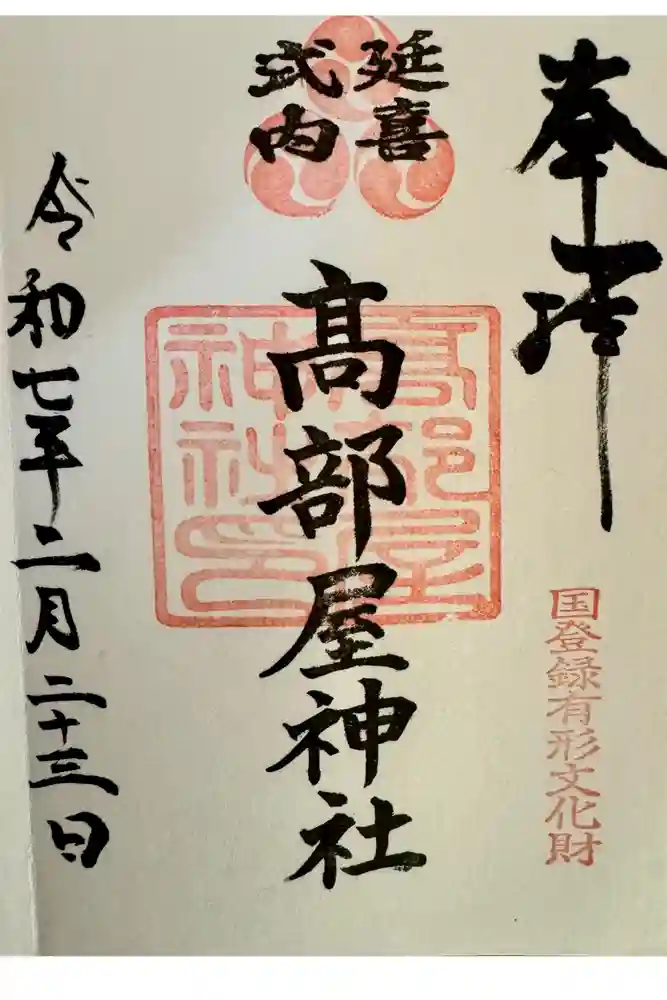 奉拝
延喜
式内
髙部屋神社
髙部屋
神社印
国登録有形文化財
令和七年二月二十三日